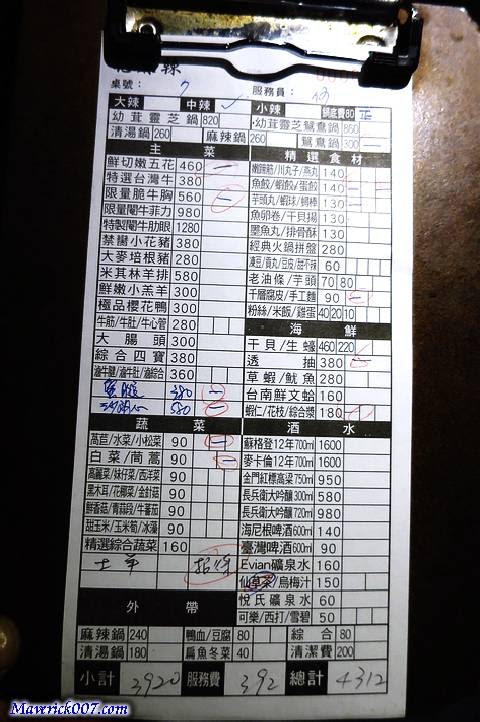 桌號： 7 服務員：
大辣 中辣 ✓ 小辣 鍋底費80 正
幼茸靈芝鍋 820 幼茸靈芝鴛鴦鍋 860
清湯鍋 260 麻辣鍋 260 鴛鴦鍋 300 一
主菜 精選食材
鮮切嫩五花 460 一 嫩蹄筋/川丸子/燕丸 140
特選台灣牛 380 魚餃/蝦餃/蛋餃 140
限量脆牛胸 560 一 芋頭丸/蝦球/蟳棒 130
限量閹牛菲力 980 魚卵卷/干貝揚 130
特製閹牛肋眼 1280 墨魚丸/排骨酥 130
禁臠小花豬 380 經典火鍋拼盤 280
大麥培根豬 280 凍豆/貢丸/豆皮/甜不辣 60
米其林羊排 580 老油條/芋頭 70 80
鮮嫩小羔羊 300 千層腐皮/手工麵 90 一
極品櫻花鴨 300 粉絲/米飯/雞蛋 40 20 10
牛筋/牛肚/牛心管 280 海鮮
大腸頭 300 干貝/生蠔 460 220
綜合四寶 380 透抽 380
滷牛腱/滷牛肚/滷綜合 360 草蝦/魷魚 280
380 一 台南鮮文蛤 160
580 一 蝦仁/花枝/綜合漿 180
蔬菜 酒水
萵苣/水菜/小松菜 90 一 蘇格登12年700ml 1600
白菜/茼蒿 90 一 麥卡倫12年700ml 1600
高麗菜/妹仔菜/西洋菜 90 金門紅標高梁750ml 950
黑木耳/花椰菜/金針菇 90 長兵衛大吟釀300ml 580
鮮香菇/青蒜段/牛蕃茄 90 長兵衛大吟釀720ml 980
甜玉米/玉米筍/冰藻 90 海尼根啤酒600ml 140
精選綜合蔬菜 160 臺灣啤酒600ml 90
招待 Evian礦泉水 160
仙草茶/烏梅汁 150
外帶 悅氏礦泉水 60
可樂/西打/雪碧 50
麻辣鍋 240 鴨血/豆腐 80 綜合 80
清湯鍋 180 扁魚冬菜 40 清潔費 200
小計 3920 服務費 392 總計 4312
Maverick007.com